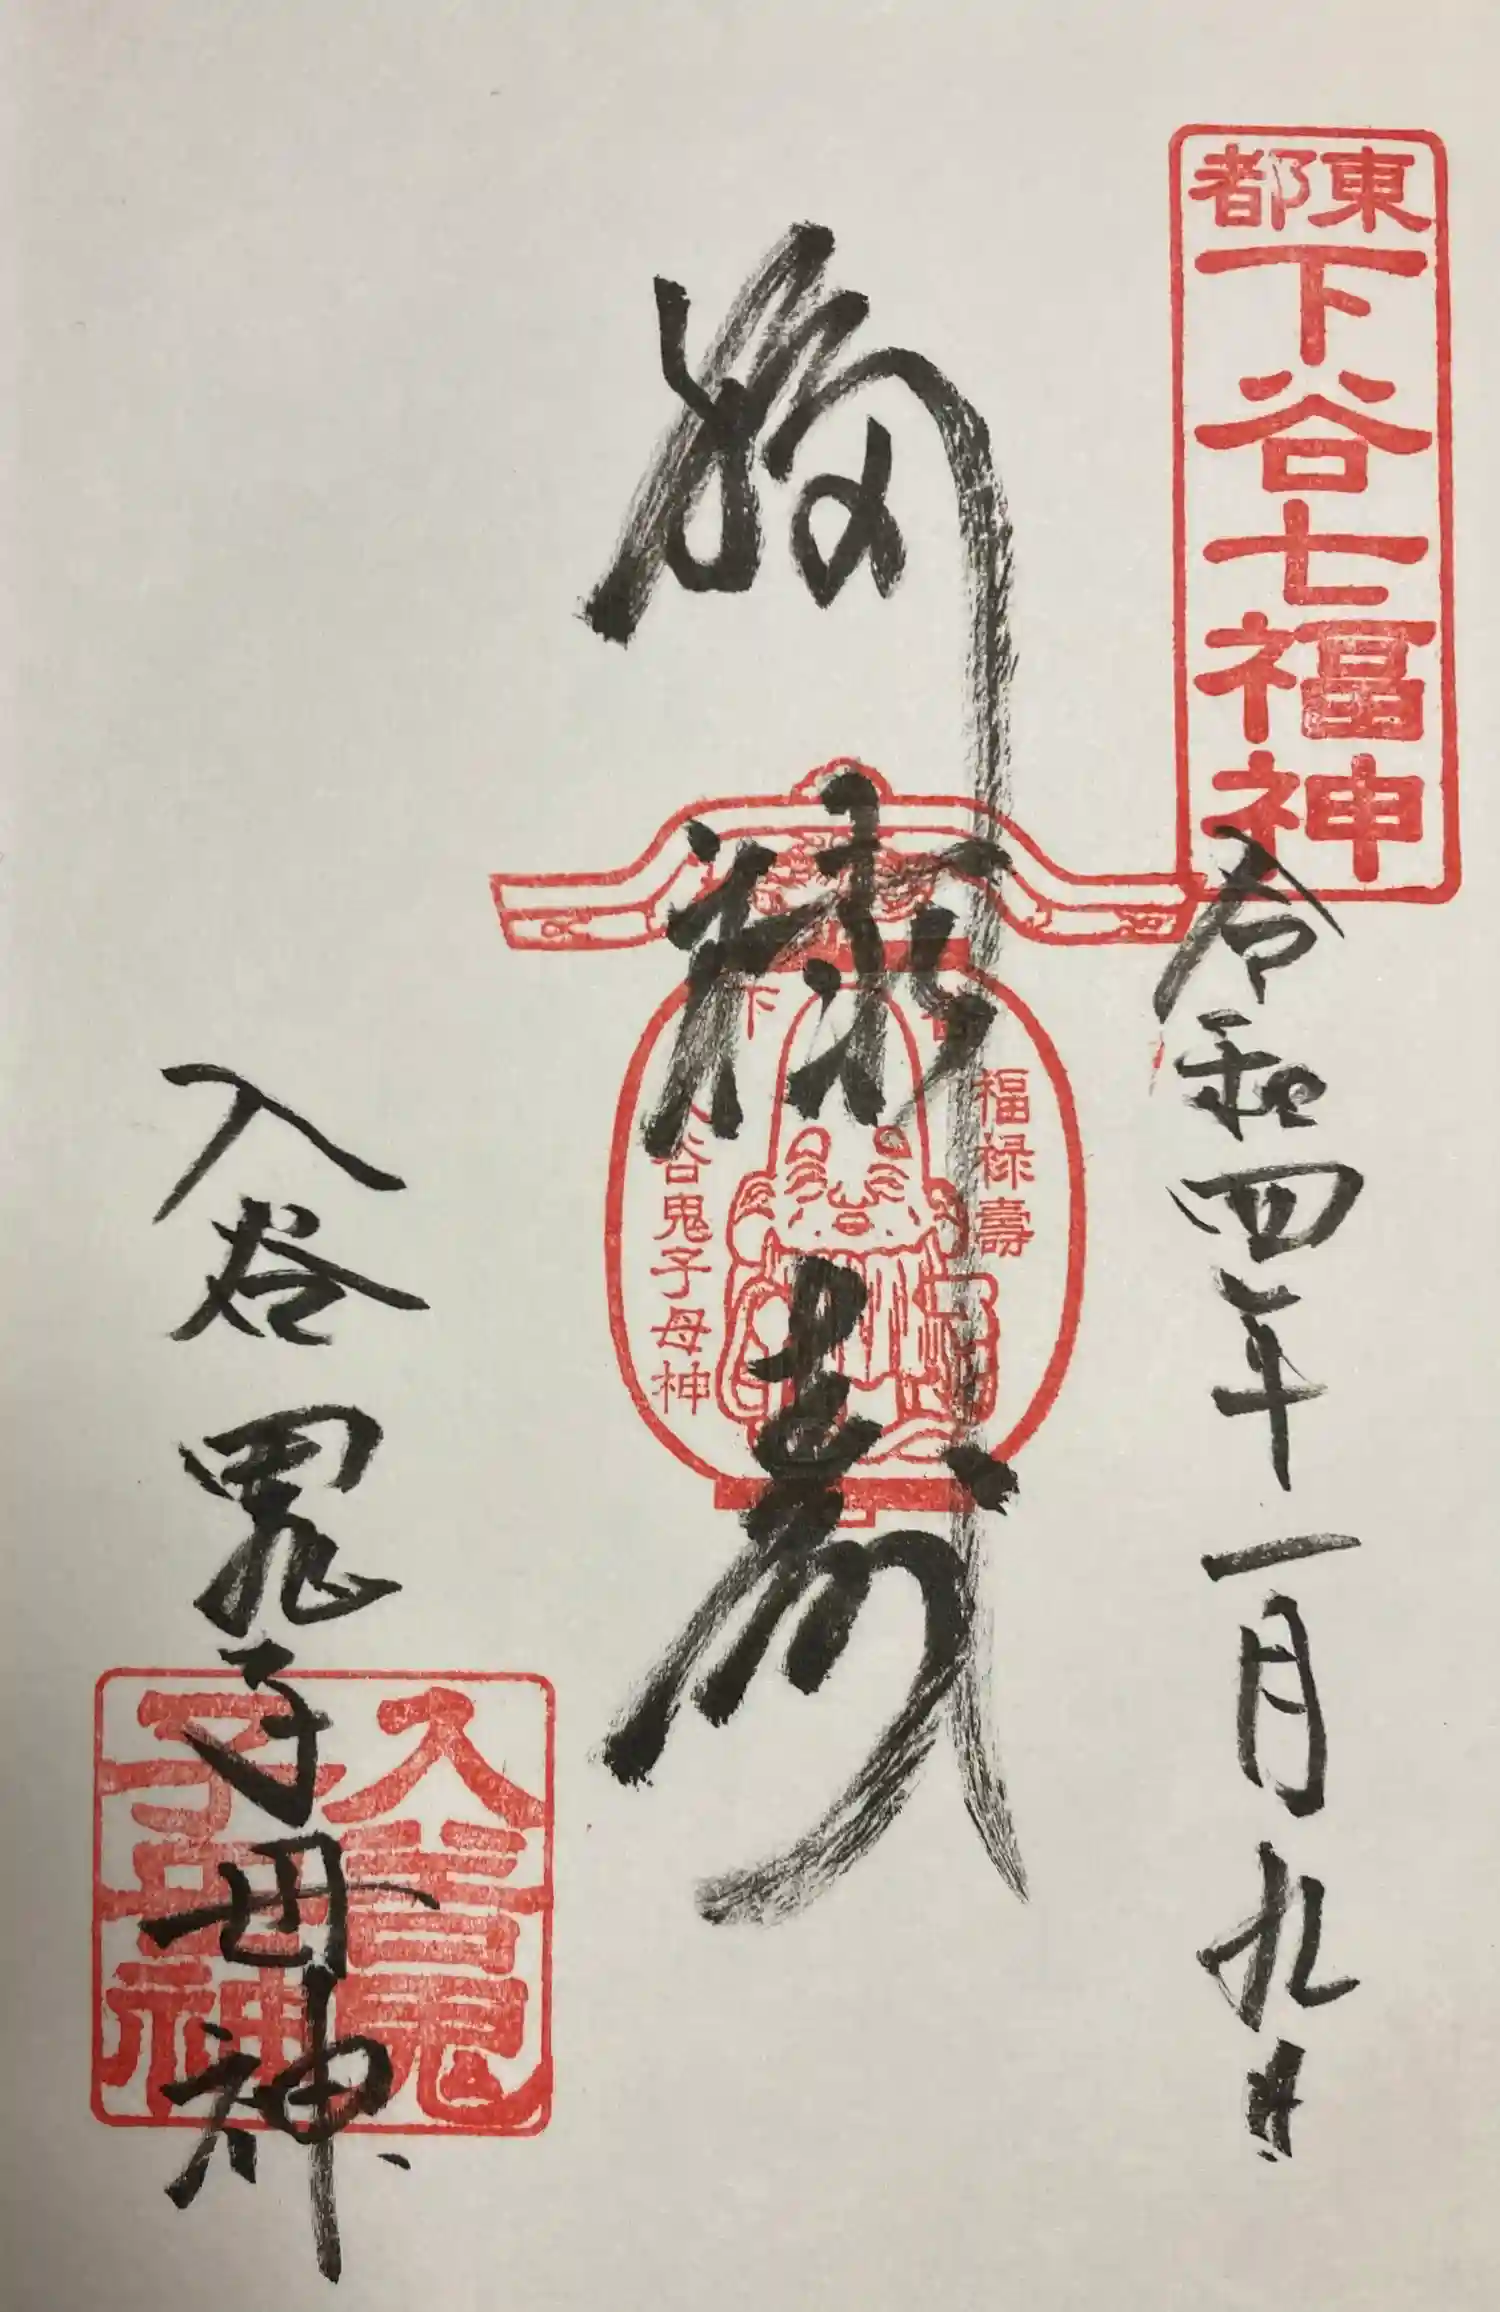 東都
下谷七福神
令和四年一月九日
福禄寿
下谷
福禄壽
入谷鬼子母神
入谷鬼子母神
入谷鬼
子母神